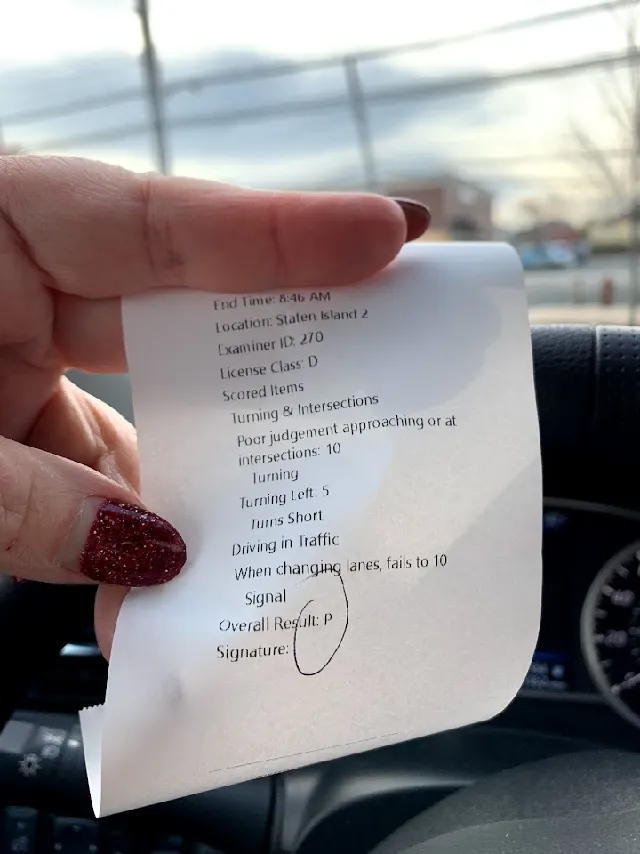 End Time: 8:46 AM
Location: Staten Island 2
Examiner ID: 270
License Class: D
Scored Items
Turning & Intersections
Poor judgement approaching or at
intersections: 10
Turning
Turning Left: 5
Turns Short
Driving in Traffic
When changing lanes, fails to 10
Signal
Overall Result: P
Signature: